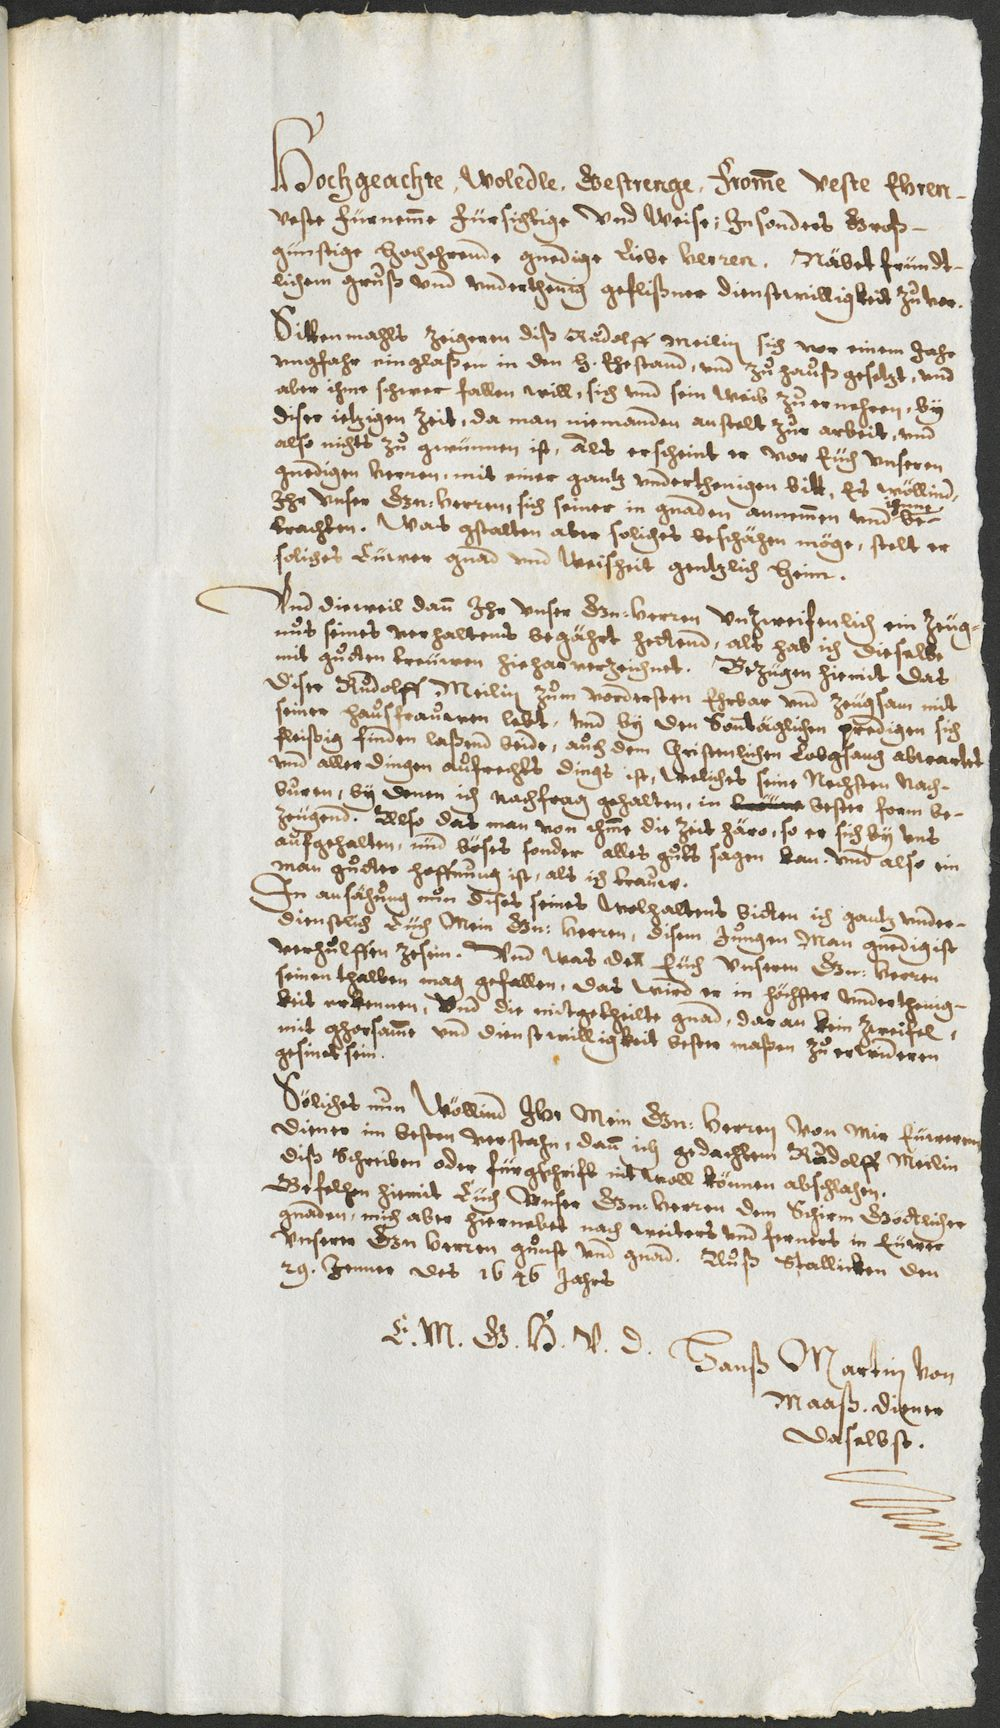 Hochgeachte, Woledle, Gestrenge, Fromme Veste Ehren-
veste fürnemme fürsichtige Vnd Weise: Insonders Groß-
günstige hochehrende gnedige Liebe Herren. Näbet fründt-
lichem gruß vnd vnderthenig geflißner dienstwilligkeit zuvor.
Sittenmahls Zeigeren diß Rudolff Meilin sich vor einem Jahr
vngfahr eingelaßen in den H. Ehestand, vnd zu hauß gesetzt, vnd
aber ihme schwer fallen will, sich vnd sein Weib zu ernehren, by
diser ietzigen Zeit, da man niemanden anstelt zur arbeit, vnd
also nichts zu gwünnen ist, Als erscheint er vor Euch Vnseren
gnedigen Herren, mit einer gantz vnderthenigen bitt, Es wöllind
Ihr Vnser Gn: Herren, sich seiner in gnaden annemmen vnd ihnne be-
trachten. Was gstalten aber soliches beschähen möge, stelt er
soliches Euwer gnad vnd Weisheit gentzlich heim.
Vnd dieweil dan Ihr Vnser Gn: Herren Vnzweifenlich ein Zeüg-
nus seines verhaltens begährt hettend, als hab ich dieselbe
mit guten treuwen hiehar verzeichnet. Bezügen hiemit das
diser Rudolff Meilin zum vordersten Ehrbar vnd Zeügsam mit
seiner haußfrauwen lebt, vnd by den Sontäglichen predigen sich
fleißig finden laßend beide, auch dem Christenlichen Lobgsang abwartet
vnd aller dingen aufrechts dings ist, Weliches seine Nechsten Nach-
buren, by denen ich nachfrag gehalten, in bester form be-
zeugend. Also das man von ihme die Zeit häro, so er sich by vns
aufgehalten, nüd böses sonder alles guts sagen kan. Vnd also ein
man guter hoffnung ist, als ich trauw.
In ansähung nun dises seines Wolhaltens bitten ich gantz vnder-
dienstlich Euch Mein Gn: Herren, disem Jungen Man gnedigist
verhulffen zesein. Vnd was den Euch Vnseren Gn: Herren
seinenthalben mag gefallen, das wird er in höchster vnderthenig-
keit erkennen, Vnd die mitgetheilte gnad, daran kein Zweifel,
mit ghorsamme vnd dienstwilligkeit bester maßen zu erwideren
gesinet sein.
Söliches nun Wöllind Ihr Mein Gn: Herren Von Mir Euwerem
Diener im besten verstahn, dan ich gedachtem Rudolff Meilin
diß Schreiben oder fürgschrift nit woll können abschlahen.
Befelhen hiemit Euch Vnser Gn: Herren dem Schirm Göttlicher
gnaden, mich aber hiernebet nach weiters vnd ferners in Euwer
Vnserer Gn Herren gunst vnd gnad. Auß Stallicken den
29. Jenner des 1646 Jahrs
E. M. G. H. V. D.
Hanß Martin Von
Maaß. Diener
daselbst.